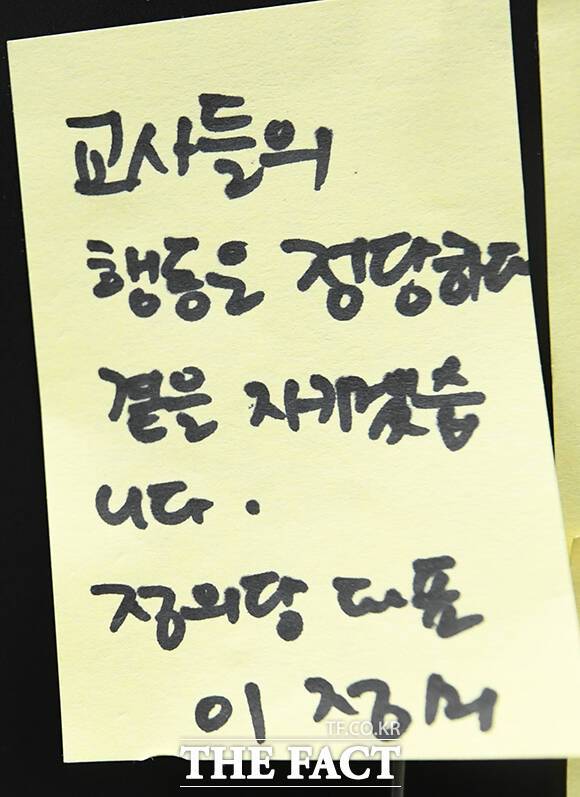 교사들의
행동은 정당하다
곁을 지키겠습
니다.
정의당 대표
이정미
TF.CO.KR
THE FACT